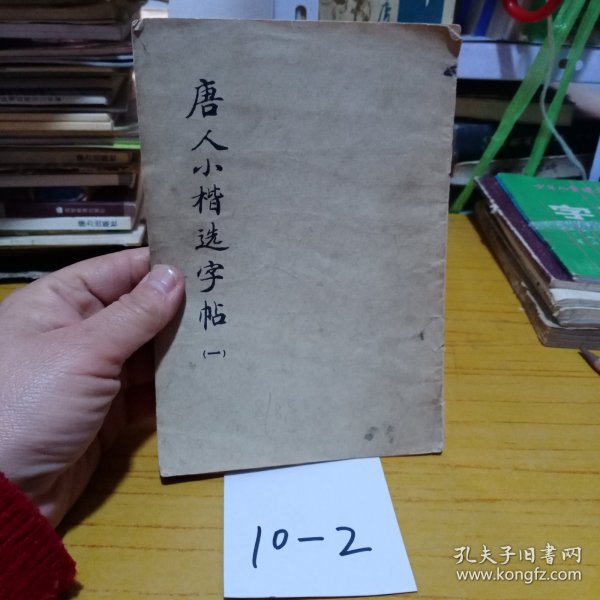 唐人小楷选字帖
(一)
10-2
字
孔夫子旧书网
www.kongfz.com